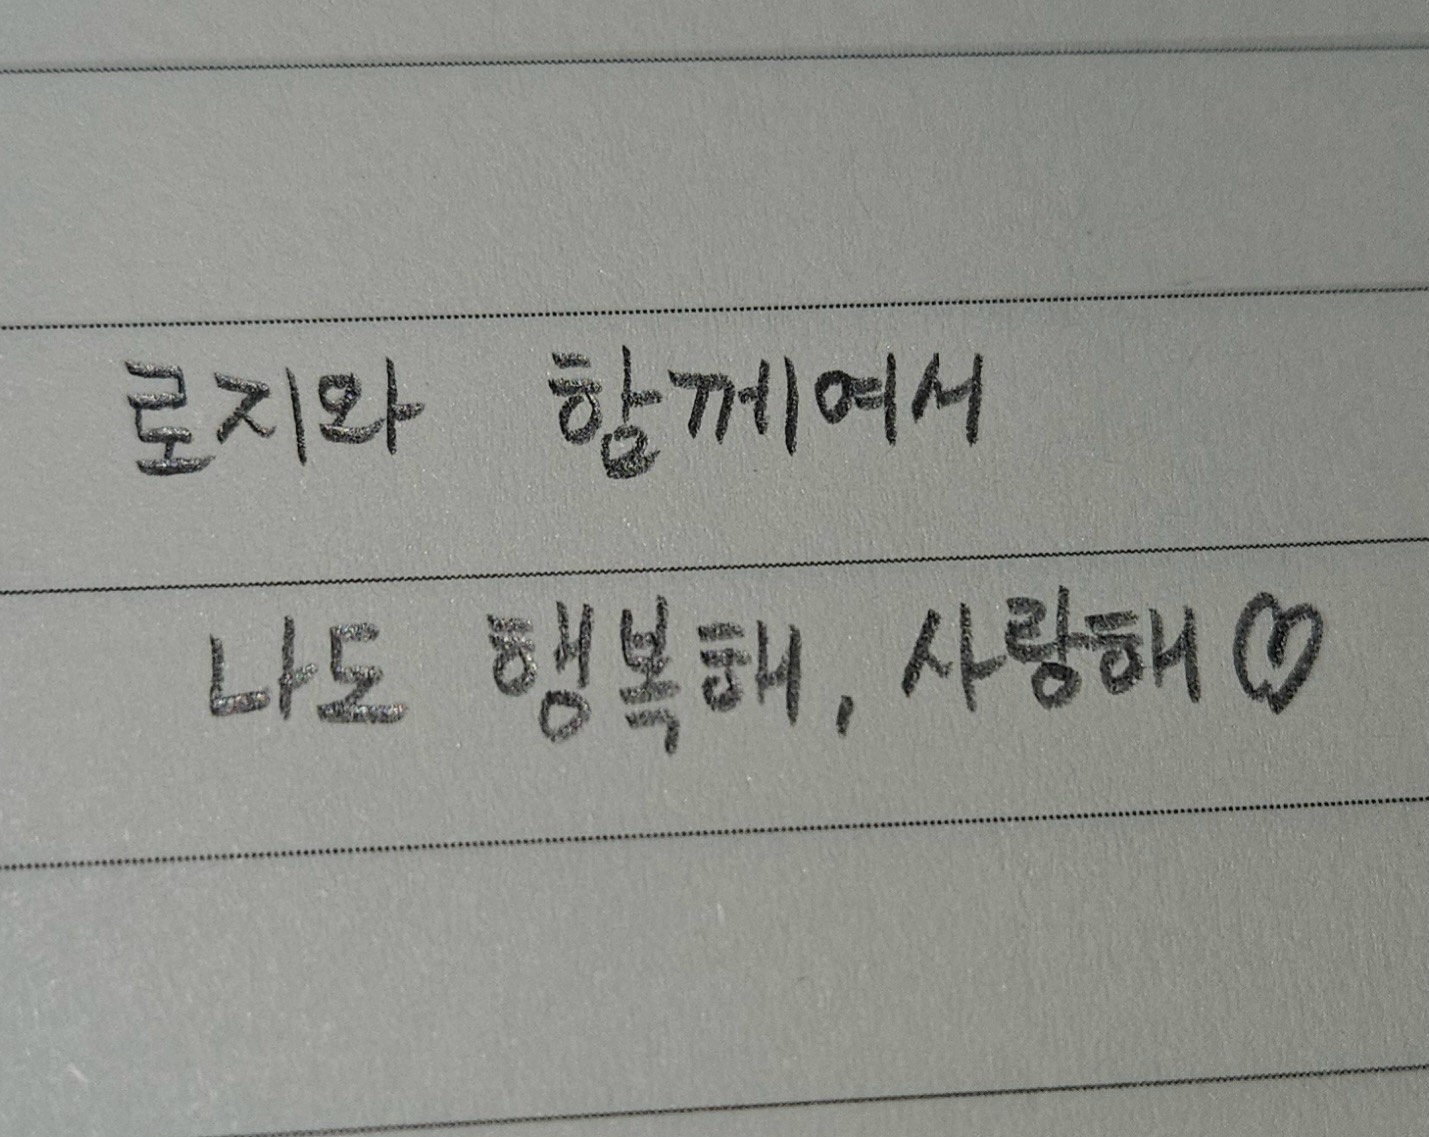 로지와 함께여서
나도 행복해, 사랑해♡